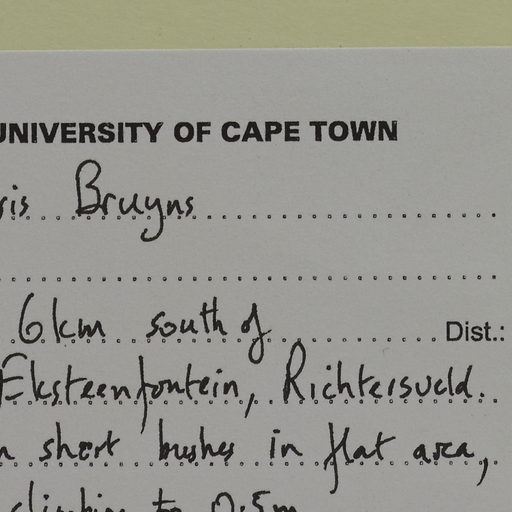 UNIVERSITY OF CAPE TOWN
ris Bruyns
6km south of Dist.:
Eksteenfontein, Richtersveld.
n short bushes in flat area,
climbing to 0.5m